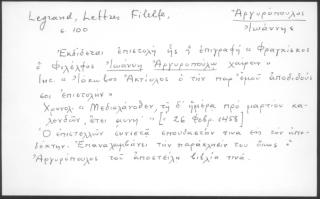 Legrand, Lettres Filelfe, Ἀργυρόπουλος
σ. 100 Ἰωάννης
Ἐκδίδεται ἐπιστολὴ ἧς ἡ ἐπιγραφή « Φραγκίσκος
ὁ Φιλέλφος Ἰωάννῃ Ἀργυροπούλῳ χαίρειν »
Inc. « Ἰάκωβος ὁ τὴν παρ' ἐμοῦ ἀποδιδούς
σοι ἐπιστολήν »
Χρονολ. « Μεδιολάνοθεν, τῇ δ' ἡμέρᾳ πρὸ μαρτίου κα-
λανδῶν, ἔτει αυνη' » [= 26 Φεβρ. 1458]
Ὁ ἐπιστέλλων συνιστᾷ σπουδαστήν τινα εἰς τὸν ἀπο-
δέκτην. Ἐπαναλαμβάνει τὴν παράκλησίν του ὅπως ὁ
Ἀργυρόπουλος τοῦ ἀποστείλῃ βιβλία τινά.